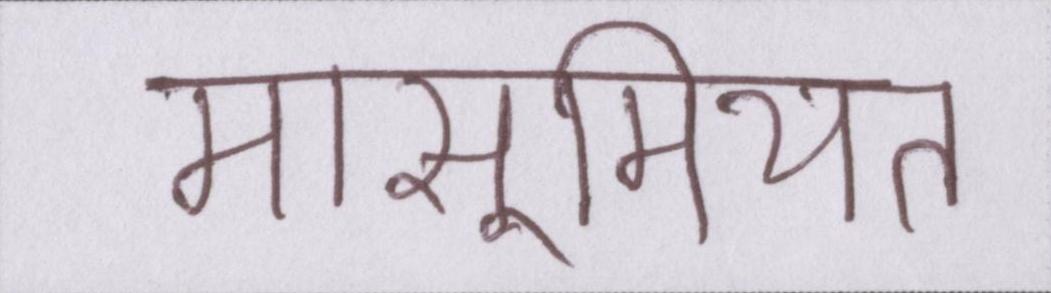 मासूमियत